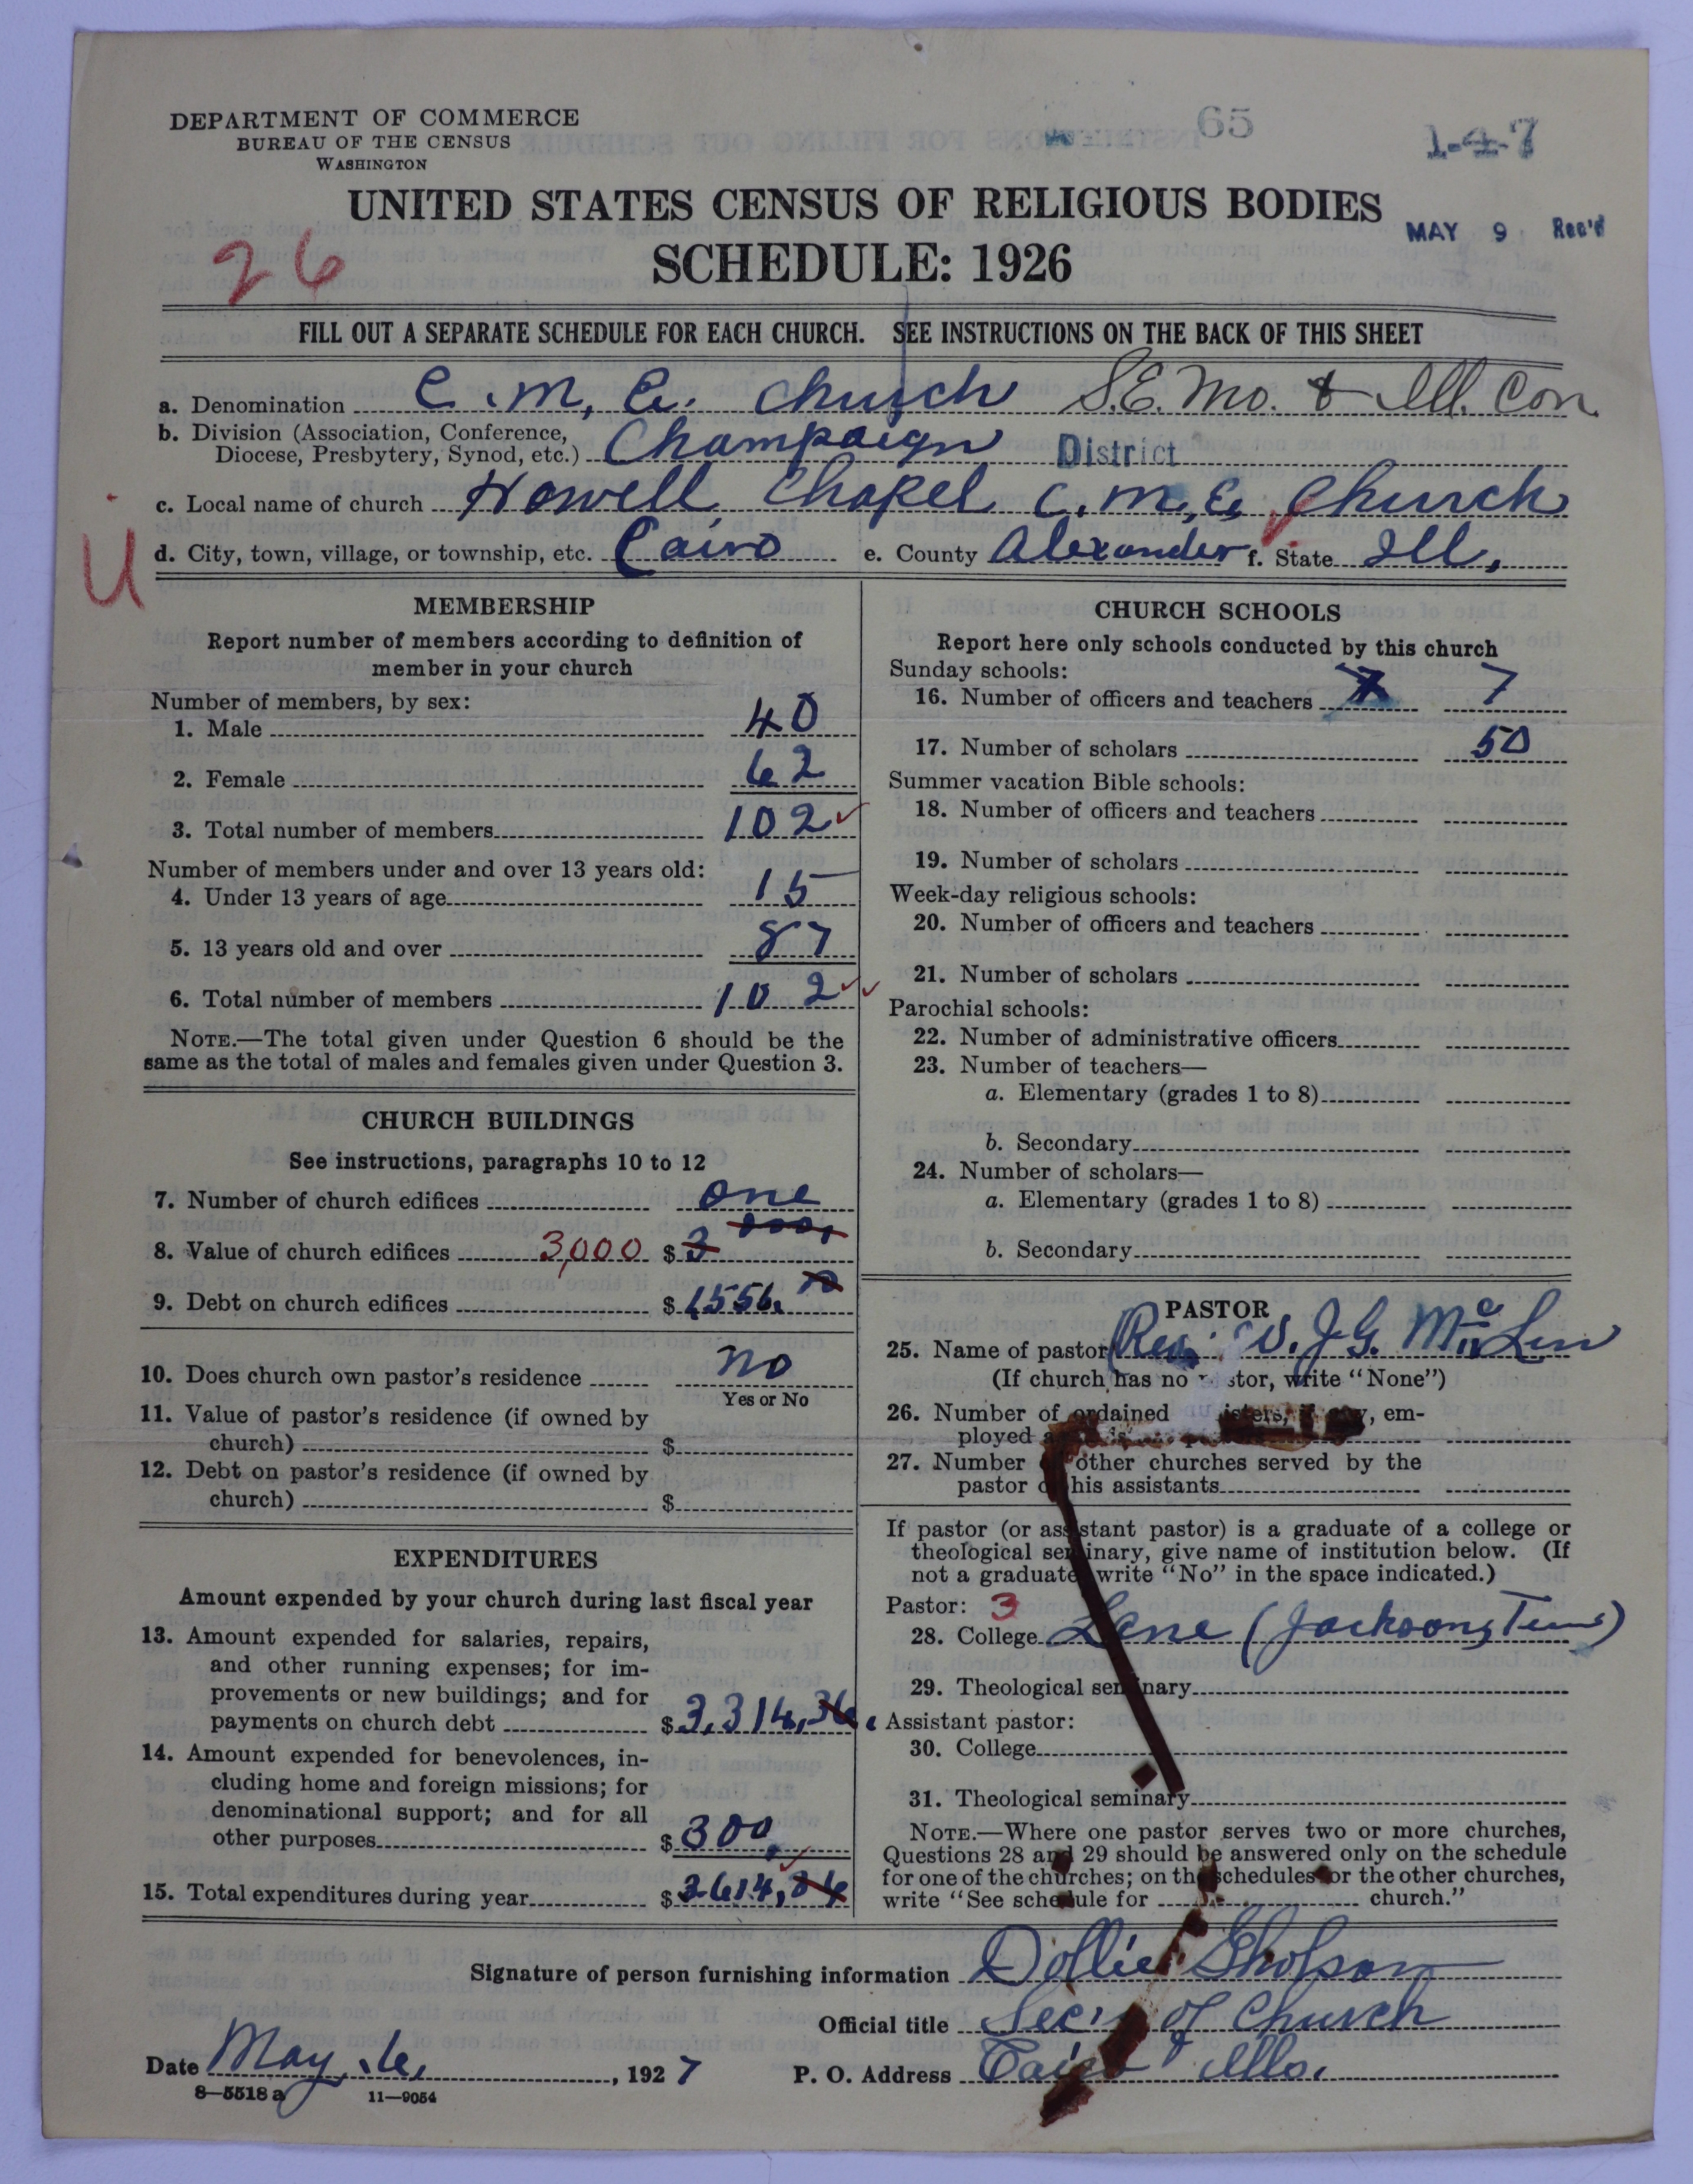 DEPARTMENT OF COMMERCE
BUREAU OF THE CENSUS
WASHINGTON
65
1-4-7
UNITED STATES CENSUS OF RELIGIOUS BODIES
MAY 9 Rec'd
26
SCHEDULE: 1926
FILL OUT A SEPARATE SCHEDULE FOR EACH CHURCH. SEE INSTRUCTIONS ON THE BACK OF THIS SHEET
a. Denomination C. M, E. Church S.E. Mo. & Ill. Con.
b. Division (Association, Conference, Diocese, Presbytery, Synod, etc.) Champaign District
c. Local name of church Howell Chapel C. M, E, Church
U
d. City, town, village, or township, etc. Cairo e. County Alexander f. State Ill,
MEMBERSHIP
Report number of members according to definition of
member in your church
Number of members, by sex:
1. Male 40
2. Female 62
3. Total number of members 102
Number of members under and over 13 years old:
4. Under 13 years of age 15
5. 13 years old and over 87
6. Total number of members 102
NOTE.—The total given under Question 6 should be the
same as the total of males and females given under Question 3.
CHURCH BUILDINGS
See instructions, paragraphs 10 to 12
7. Number of church edifices one
8. Value of church edifices 3,000 $ 3 000,
9. Debt on church edifices $ 1556.
10. Does church own pastor's residence no
Yes or No
11. Value of pastor's residence (if owned by
church) $
12. Debt on pastor's residence (if owned by
church) $
EXPENDITURES
Amount expended by your church during last fiscal year
13. Amount expended for salaries, repairs,
and other running expenses; for im-
provements or new buildings; and for
payments on church debt $ 3,314,36
14. Amount expended for benevolences, in-
cluding home and foreign missions; for
denominational support; and for all
other purposes $ 300,
15. Total expenditures during year $ 3614,36
CHURCH SCHOOLS
Report here only schools conducted by this church
Sunday schools:
16. Number of officers and teachers 7 7
17. Number of scholars 50
Summer vacation Bible schools:
18. Number of officers and teachers
19. Number of scholars
Week-day religious schools:
20. Number of officers and teachers
21. Number of scholars
Parochial schools:
22. Number of administrative officers
23. Number of teachers—
a. Elementary (grades 1 to 8)
b. Secondary
24. Number of scholars—
a. Elementary (grades 1 to 8)
b. Secondary
PASTOR
25. Name of pastor Rev. J.G.
(If church has no pastor, write "None")
26. Number of ordained em-
ployed
27. Number other churches served by the
pastor his assistants
If pastor (or assistant pastor) is a graduate of a college or
theological seminary, give name of institution below. (If
not a graduate write "No" in the space indicated.)
Pastor: 3
28. College Lane (Jackson, Tenn)
29. Theological seminary
Assistant pastor:
30. College
31. Theological seminary
NOTE.—Where one pastor serves two or more churches,
Questions 28 and 29 should be answered only on the schedule
for one of the churches; on the schedules for the other churches,
write "See schedule for church."
Signature of person furnishing information Dollie Gholson
Official title Sec'y of Church
Date May 6, 1927 P. O. Address Cairo Ills.
8—5518 a 11—9054